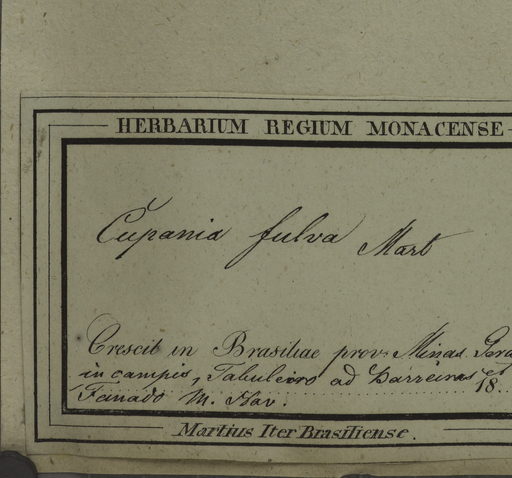 HERBARIUM REGIUM MONACENSE
Cupania fulva Mart
Crescit in Brasiliae prov. Minas Gera
in campis, Tabuleiro ad Barreiras et
Fanado M. Nov. 18.
Martius Iter Brasiliense.